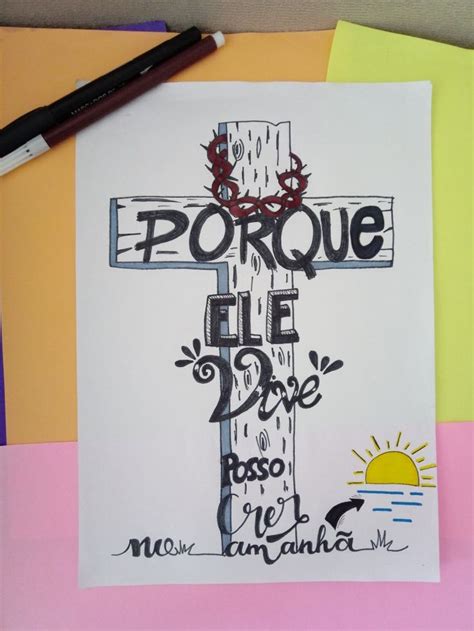 PORQUE
ELE
"Vive"
POSSO
Crer
no amanhã